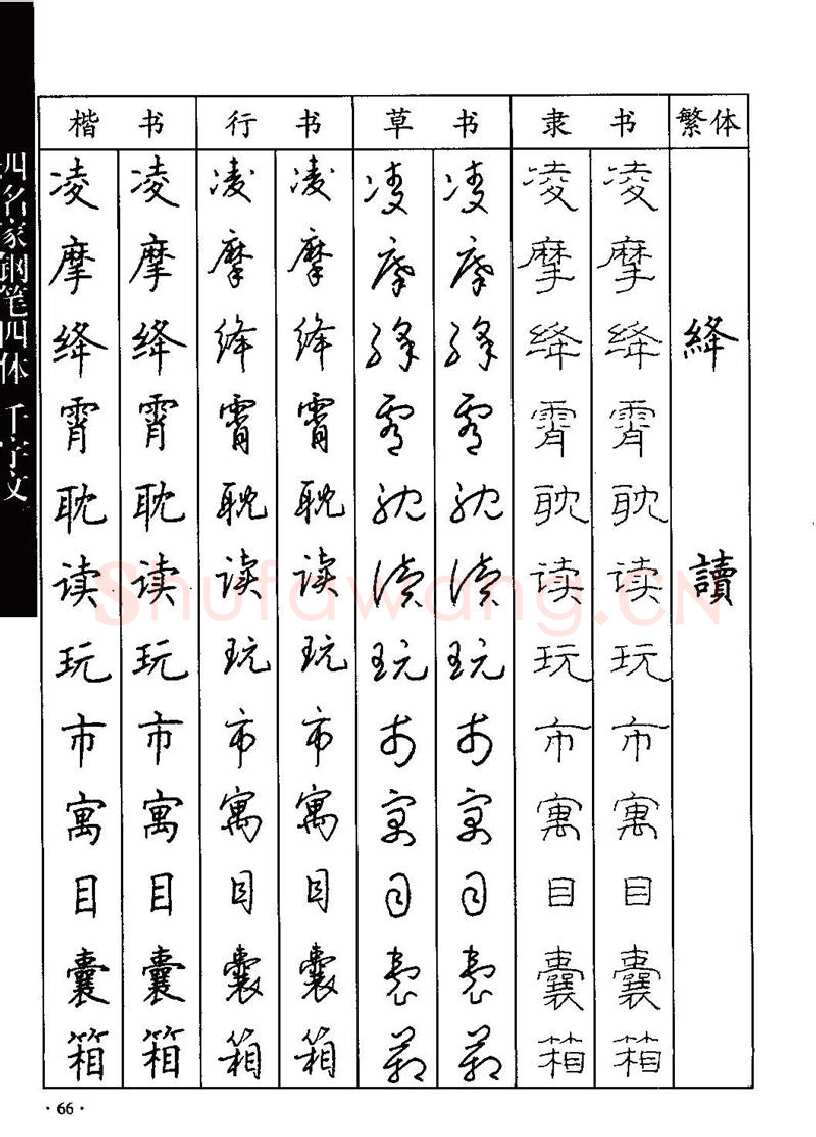 楷书 行书 草书 隶书 繁体
凌 凌 凌 凌 凌 凌 凌 凌
摩 摩 摩 摩 摩 摩 摩 摩
绛 绛 绛 绛 绛 绛 绛 绛 絳
霄 霄 霄 霄 霄 霄 霄 霄
耽 耽 耽 耽 耽 耽 耽 耽
读 读 读 读 读 读 读 读 讀
玩 玩 玩 玩 玩 玩 玩 玩
市 市 市 市 市 市 市 市
寓 寓 寓 寓 寓 寓 寓 寓
目 目 目 目 目 目 目 目
囊 囊 囊 囊 囊 囊 囊 囊
箱 箱 箱 箱 箱 箱 箱 箱
四名家钢笔四体千字文
Shufawang.CN
·66·